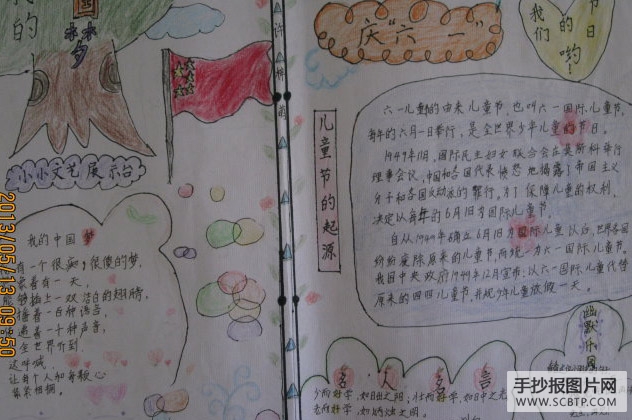 我的
梦
小小文艺展示台
我们的节日哟!
庆“六一”
儿童节的起源
六一儿童的由来儿童节,也叫六一国际儿童节,
每年的六月一日举行,是全世界少年儿童的节日。
1949年11月,国际民主妇女联合会在莫斯科举行
理事会议,中国和各国代表愤怒地揭露了帝国主义
分子和各国反动派的罪行,为了保障儿童的权利,
决定以每年的6月1日为国际儿童节。
自从1949年确立6月1日为国际儿童以后,世界各国
纷纷废除原来的儿童节,而统一为六一国际儿童节。
我国中央政府1949年12月宣布:以六一国际儿童代替
原来的四四儿童节,并规少年儿童放假一天。
我的中国梦
有一个很痴,很傻的梦,
有一天,
能够插上一双洁白的翅膀,
百种语言,
一千种声音,
全世界听到
这呼喊,
让每个人和每颗心
紧紧相拥。
名人名言
少而好学,如日出之阳;壮而好学,如日中之光
老而好学,如炳烛之明。
幽默乐园
2013/05/13 09:50
手抄报图片网
WWW.SCBTP.COM